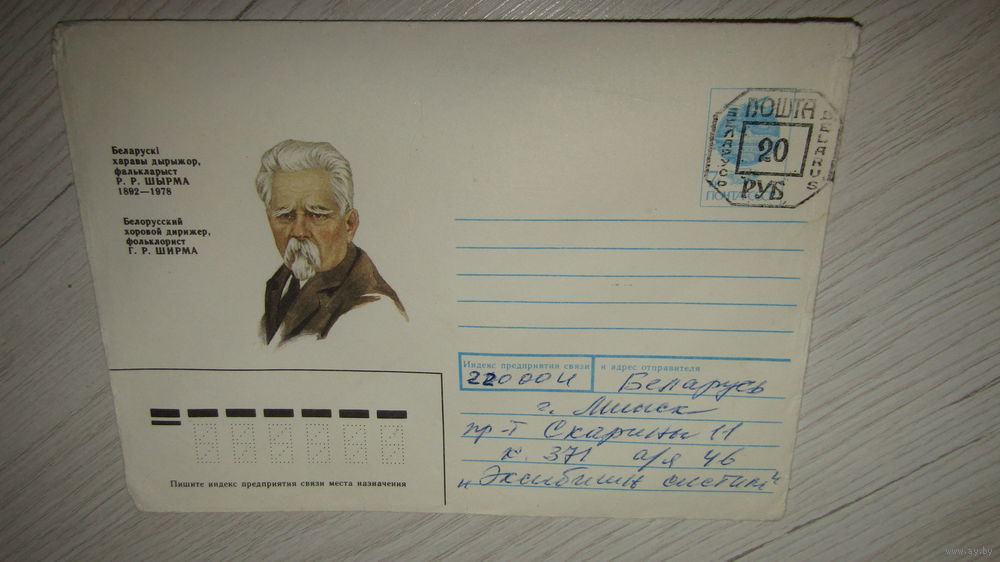 Беларускі
харавы дырыжор,
фалькларыст
Р. Р. ШЫРМА
1892—1978
Белорусский
хоровой дирижер,
фольклорист
Г. Р. ШИРМА
ПОШТА
БЕЛАРУСЬ
BELARUS
20
РУБ
ПОЧТА
Индекс предприятия связи и адрес отправителя
Беларусь
г. Минск
пр-т Скарины 11
к. 371 а/я 46
Пишите индекс предприятия связи места назначения
www.ay.by